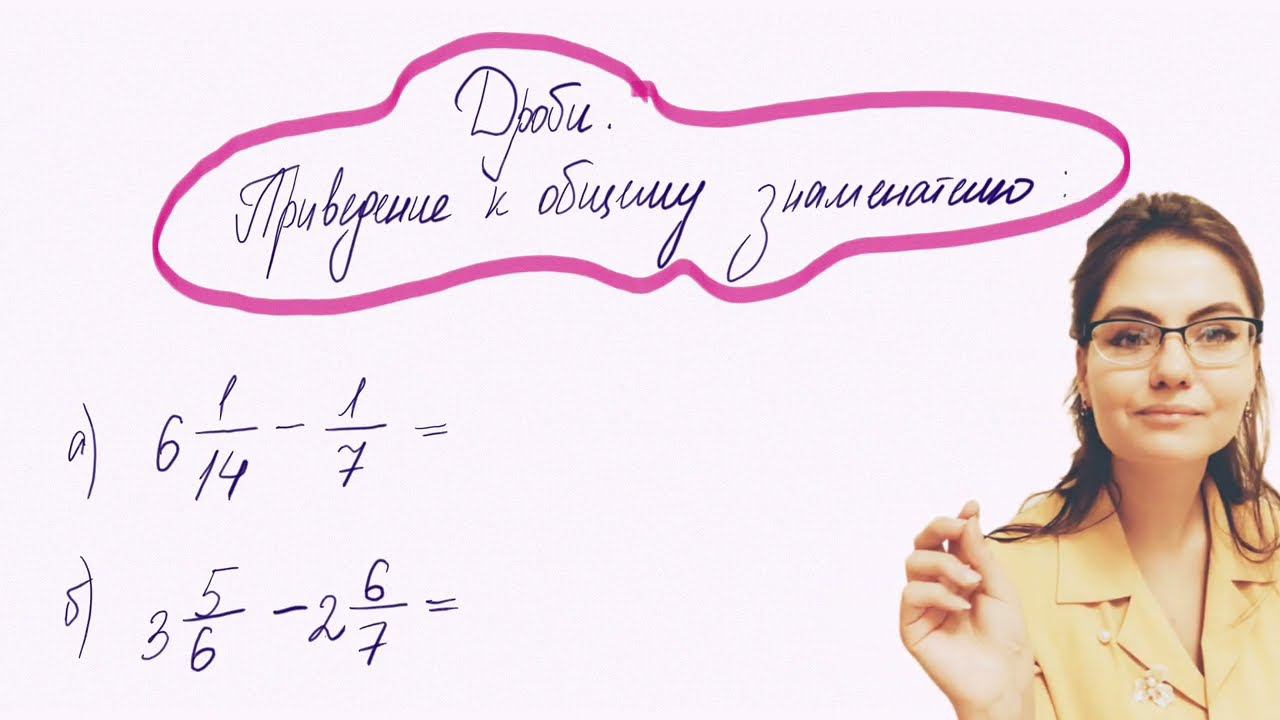 Дроби.
Приведение к общему знаменателю:
а) 6 1/14 - 1/7 =
б) 3 5/6 - 2 6/7 =